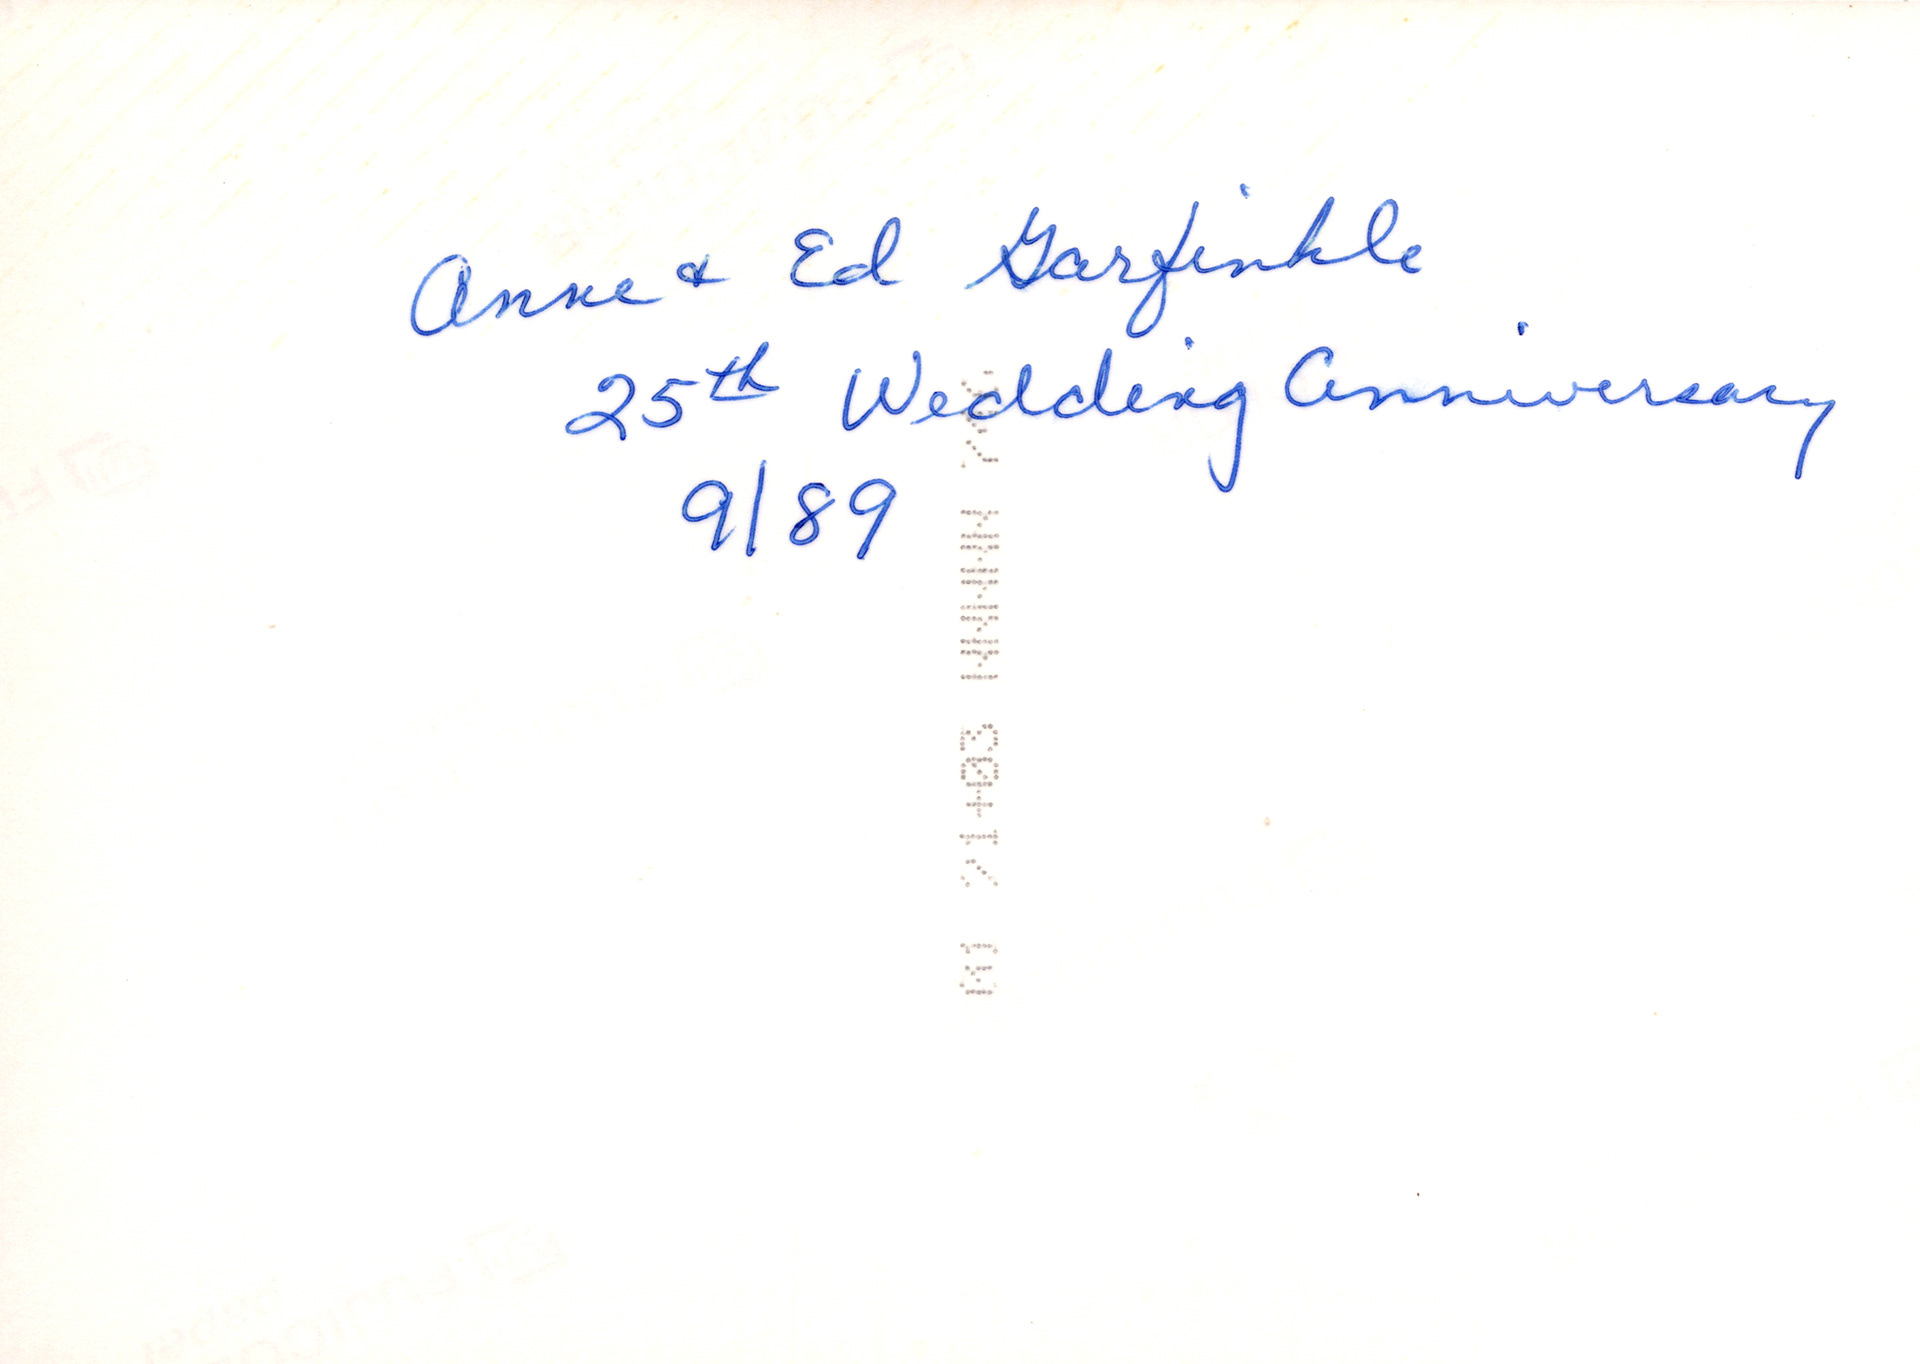 Anne & Ed Garfinkle
25th Wedding Anniversary
9/89